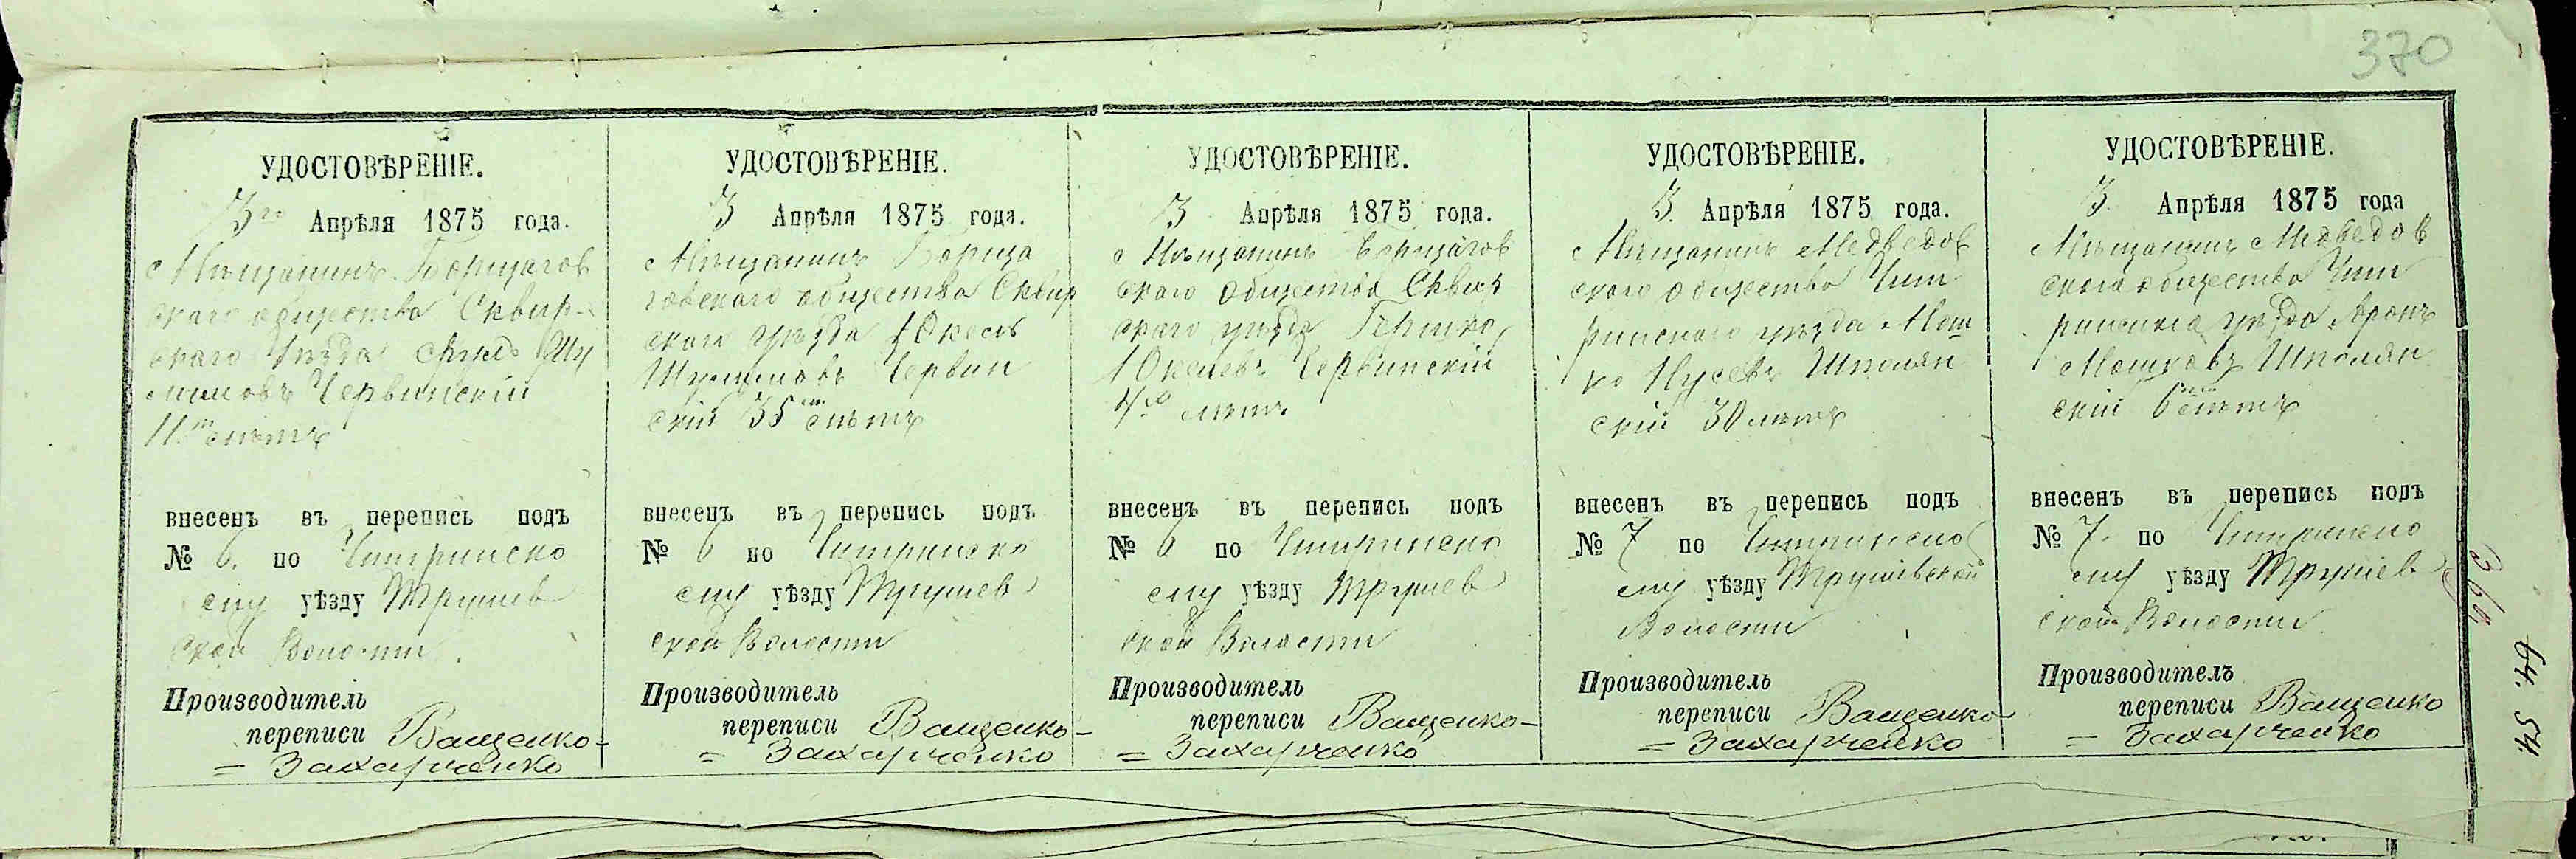 370
УДОСТОВѢРЕНІЕ.
3го Апрѣля 1875 года.
Мѣщанинъ Борщагов
скаго общества Сквир-
скаго уѣзда
Червинскій
11ти лѣтъ
внесенъ въ перепись подъ
№ 6. по Чигринско
му уѣзду Трушев
ской Волости.
Производитель
переписи Ващенко-
= Захарченко
УДОСТОВѢРЕНІЕ.
3 Апрѣля 1875 года.
Мѣщанинъ Борща
говскаго общества Сквир
скаго уѣзда Юкель
Червин
скій 35ти лѣтъ
внесенъ въ перепись подъ
№ 6 по Чигринско
му уѣзду Трушев
ской Волости
Производитель
переписи Ващенко-
= Захарченко
УДОСТОВѢРЕНІЕ.
3 Апрѣля 1875 года.
Мѣщанинъ Борщагов
скаго общества Сквир
скаго уѣзда Гершко
Юкелевъ Червинскій
лѣтъ
внесенъ въ перепись подъ
№ 6 по Чигринско
му уѣзду Трушев
ской Волости
Производитель
переписи Ващенко-
= Захарченко
УДОСТОВѢРЕНІЕ.
3. Апрѣля 1875 года.
Мѣщанинъ Медведов
скаго общества Чиг
ринскаго уѣзда Мош
ко Нусевъ Шполян
скій 30 лѣтъ
внесенъ въ перепись подъ
№ 7 по Чигринско
му уѣзду Трушевской
Волости
Производитель
переписи Ващенко-
= Захарченко
УДОСТОВѢРЕНІЕ.
3. Апрѣля 1875 года
Мѣщанинъ Медведов
скаго общества Чиг
ринскаго уѣзда Аронъ
Мошковъ Шполян
скій 6ти лѣтъ
внесенъ въ перепись подъ
№ 7. по Чигринско
му уѣзду Трушев
ской Волости.
Производитель
переписи Ващенко
= Захарченко
64. 54.